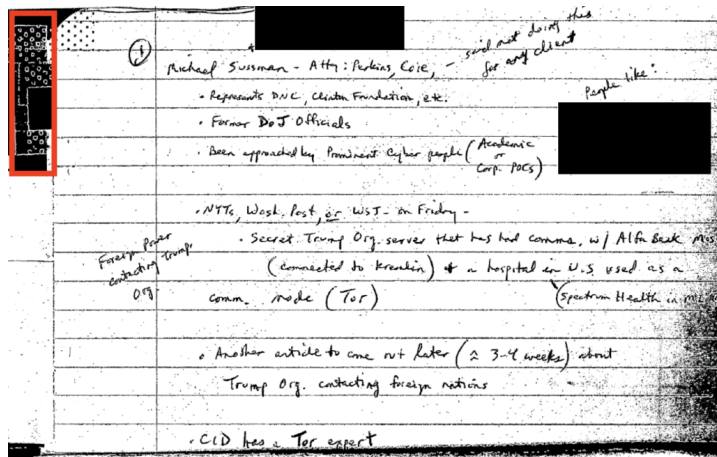 ①
Michael Sussman - Atty: Perkins, Coie, - said not doing this for any client
People like:
• Represents DNC, Clinton Foundation, etc.
• Former DoJ Officials
• Been approached by Prominent Cyber people (Academic or Corp. POCs)
• NYTs, Wash. Post, or WSJ - on Friday -
• Secret Trump Org. server that has had comms. w/ Alfa Bank
Foreign Power contacting Trump Org.
(connected to Kremlin) + a hospital in U.S. used as a
comm. node (Tor)
(Spectrum Health in
• Another article to come out later (≈ 3-4 weeks) about
Trump Org. contacting foreign nations
• CID has a Tor expert